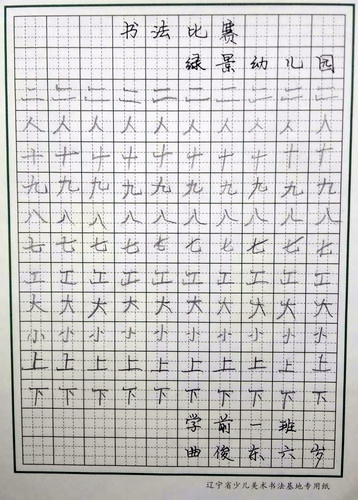 书法比赛
绿景幼儿园
二二二二二二二二二
人人人人人人人人人
十十十十十十十十十
九九九九九九九九九
八八八八八八八八八
七七七七七七七七七
工工工工工工工工工
大大大大大大大大大
小小小小小小小小小
上上上上上上上上上
下下下下下下下下下
学前一班
曲俊东六岁
辽宁省少儿美术书法基地专用纸